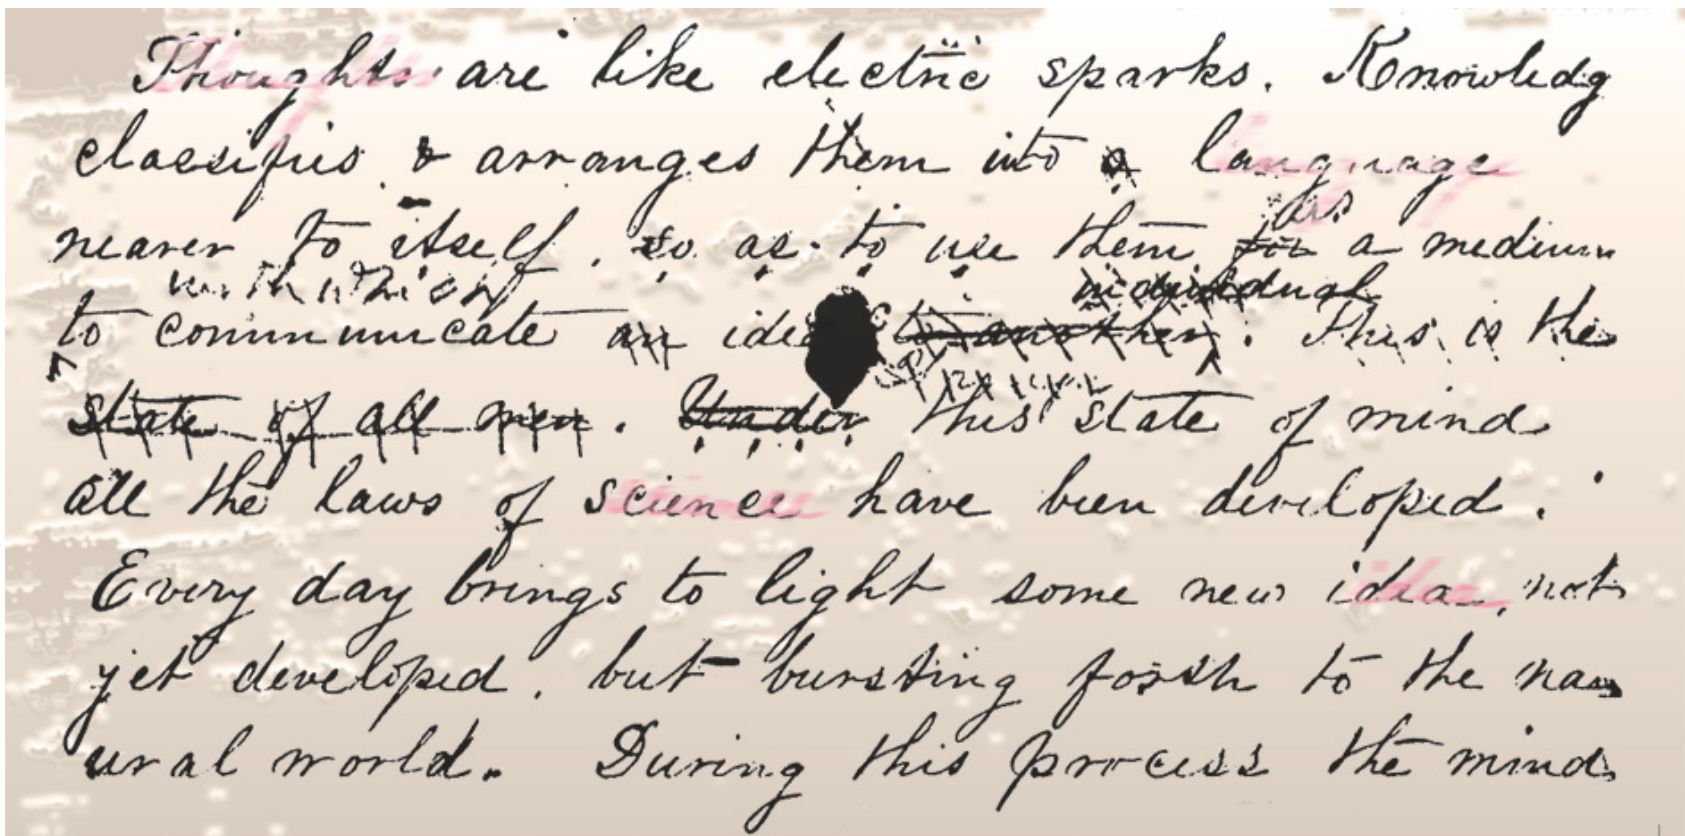 Thoughts are like electric sparks. Knowledg
classifies & arranges them into a language
as
nearer to itself, so as to use them for a medium
with which individual
to communicate an idea to another. This is the
state of all men. Under this state of mind
all the laws of science have been developed.
Every day brings to light some new idea, not
yet developed, but bursting forth to the nat
ural world. During this process the mind